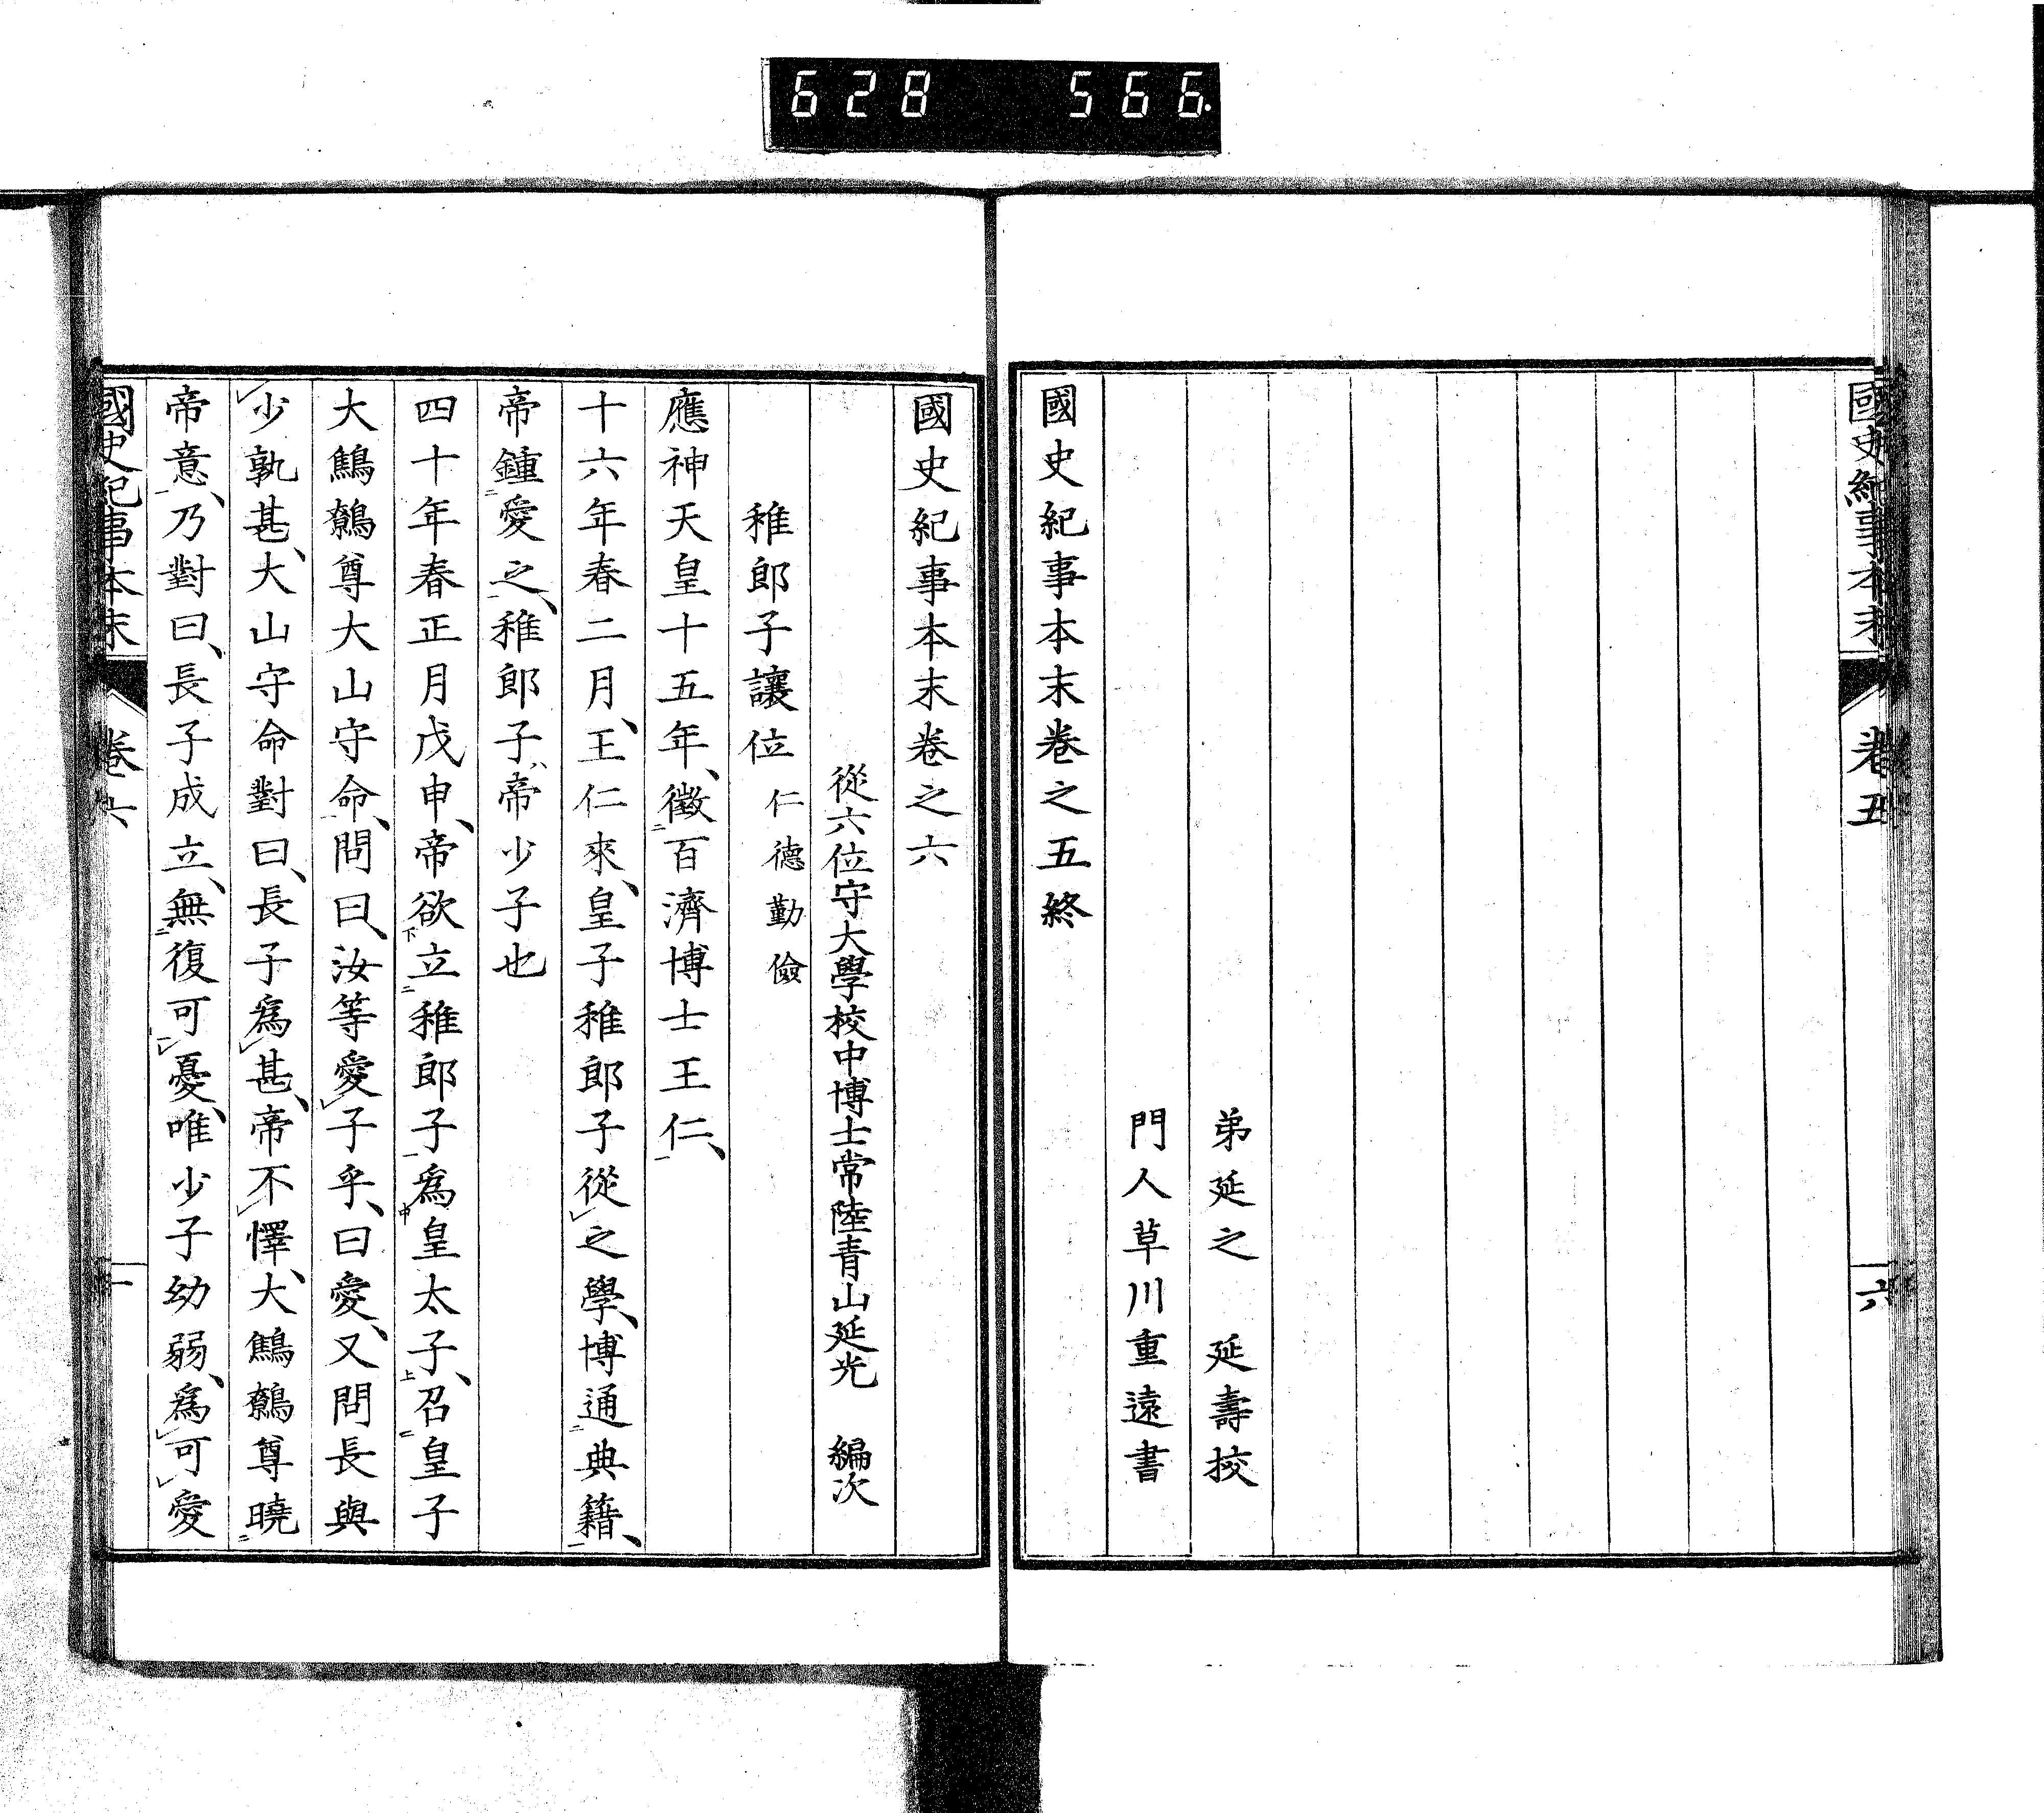 628 566.
國史紀事本末 卷五 六
弟延之 延壽挍
門人草川重遠書
國史紀事本末卷之五終
國史紀事本末卷之六
從六位守大學校中博士常陸青山延光 編次
稚郎子讓位 仁德勤儉
應神天皇十五年、徵二百濟博士王仁、一
十六年春二月、王仁來、皇子稚郎子從レ之學、博通二典籍、一
帝鍾二愛之、一稚郎子、帝少子也
四十年春正月戊申、帝欲下立二稚郎子一爲中皇太子、上召二皇子
大鷦鷯尊大山守命、一問曰、汝等愛レ子乎、曰愛、又問長與
レ少孰甚、大山守命對曰、長子爲レ甚、帝不レ懌、大鷦鷯尊曉二
帝意、一乃對曰、長子成立、無二復可一レ憂、唯少子幼弱、爲レ可レ愛
國史紀事本末 卷六 一